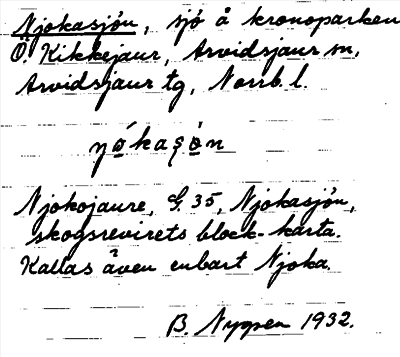 Njokasjön, sjö å kronoparken
Ö. Kikkejaur, Arvidsjaur sn,
Arvidsjaur tg, Norrb. l.
Njokojaure, G. 35, Njokasjön,
skogsrevirets block-karta.
Kallas även enbart Njoka.
B. Nygren 1932.